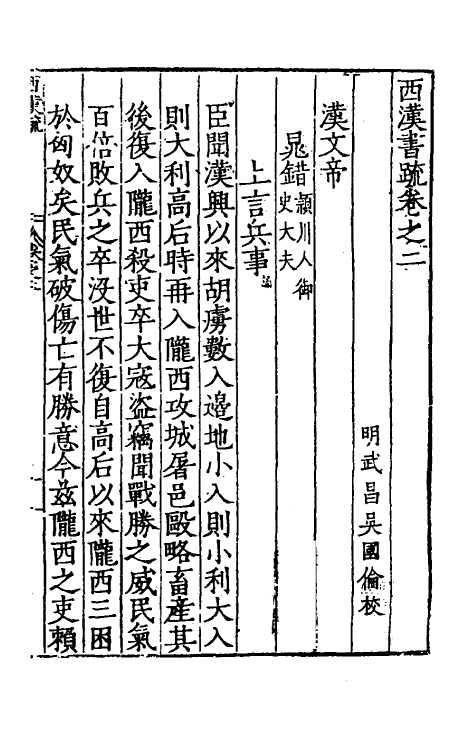 西漢書疏卷之二
明武昌吳國倫校
漢文帝
晁錯潁川人御
史大夫
上言兵事
臣聞漢興以來胡虜數入邊地小入則小利大入
則大利高后時再入隴西攻城屠邑毆略畜產其
後復入隴西殺吏卒大寇盜竊聞戰勝之威民氣
百倍敗兵之卒沒世不復自高后以來隴西三困
於匈奴矣民氣破傷亡有勝意今茲隴西之吏賴